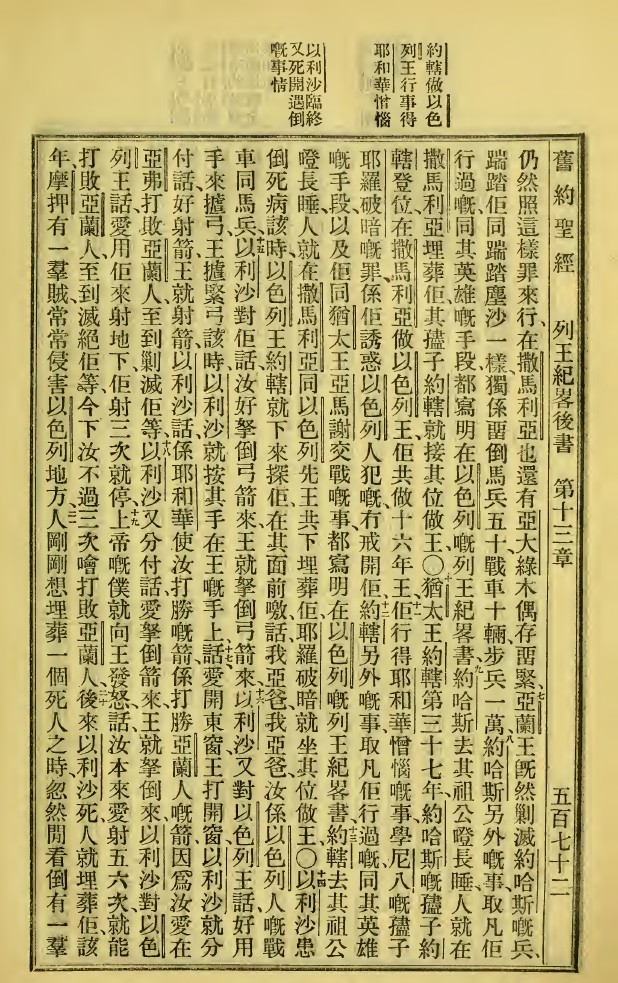 約轄做以色
列王行事得
耶和華憎惱
以利沙臨終
又死開遇倒
嘅事情
舊約聖經 列王紀畧後書 第十三章 五百七十二
仍然照這樣罪來行、在撒馬利亞也還有亞大綠木偶存畱緊、七亞蘭王旣然剿滅約哈斯嘅兵、
踹踏佢同踹踏塵沙一樣、獨係畱倒馬兵五十戰車十輛步兵一萬、八約哈斯另外嘅事、取凡佢
行過嘅同其英雄嘅手段都寫明在以色列嘅列王紀畧書、九約哈斯去其祖公瞪長睡、人就在
撒馬利亞埋葬佢、其孻子約轄就接其位做王〇十猶太王約轄第三十七年、約哈斯嘅孻子約
轄登位在撒馬利亞做以色列王、佢共做十六年王、十一佢行得耶和華憎惱嘅事、學尼八嘅孻子
耶羅破暗嘅罪、係佢誘惑以色列人犯嘅、冇戒開佢、十二約轄另外嘅事、取凡佢行過嘅同其英雄
嘅手段、以及佢同猶太王亞馬謝交戰嘅事都寫明在以色列嘅列王紀畧書、十三約轄去其祖公
瞪長睡、人就在撒馬利亞同以色列先王共下埋葬佢、耶羅破暗就坐其位做王〇十四以利沙患
倒死病該時、以色列王約轄就下來探佢、在其面前噭話、我亞爸、我亞爸、汝係以色列人嘅戰
車同馬兵、十五以利沙對佢話、汝好拏倒弓箭來、王就拏倒弓箭來、十六以利沙又對以色列王話、好用
手來擓弓、王擓緊弓該時、以利沙就按其手在王嘅手上、十七話、愛開東窗、王打開窗、以利沙就分
付話、好射箭、王就射箭、以利沙話、係耶和華使汝打勝嘅箭、係打勝亞蘭人嘅箭、因爲汝愛在
亞弗打敗亞蘭人、至到剿滅佢等、十八以利沙又分付話、愛拏倒箭來、王就拏倒來、以利沙對以色
列王話、愛用佢來射地下、佢射三次就停、十九上帝嘅僕就向王發怒話、汝本來愛射五六次、就能
打敗亞蘭人至到滅絕佢等、今下汝不過三次噲打敗亞蘭人、二十後來以利沙死、人就埋葬佢、該
年摩押有一羣賊常常侵害以色列地方、二一人剛剛想埋葬一個死人之時、忽然閒看倒有一羣